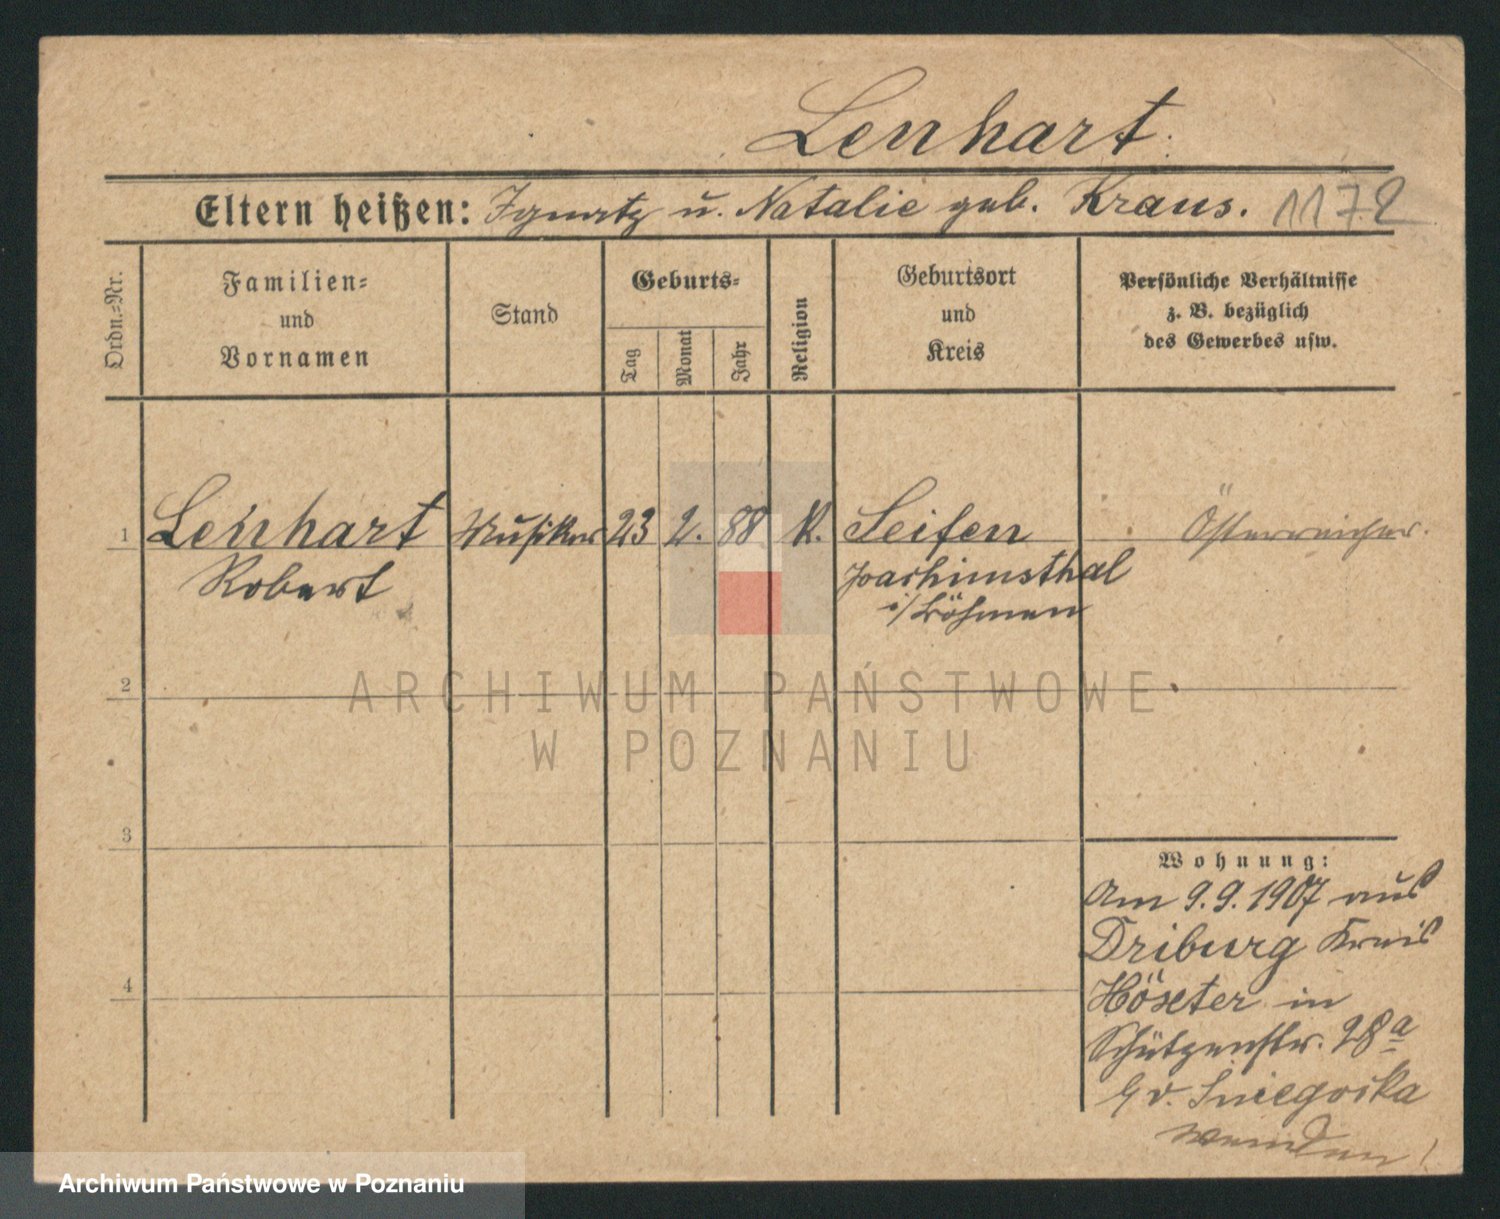 Lenhart.
Eltern heißen: Ignatz u. Natalie geb. Kraus. 1172
Ordn.-Nr.
Familien-
und
Vornamen
Stand
Geburts-
Tag
Monat
Jahr
Religion
Geburtsort
und
Kreis
Persönliche Verhältnisse
z. B. bezüglich
des Gewerbes usw.
1 Lenhart Musiker 23 2. 88 K. Seifen Österreicher.
Robert Joachimsthal
i/Böhmen
2
ARCHIWUM PAŃSTWOWE
W POZNANIU
3
Wohnung:
Am 9.9.1907 aus
Driburg Kreis
4
Höxter in
Schützenstr. 28a
b/ v. Sniegocka
wenden!
Archiwum Państwowe w Poznaniu